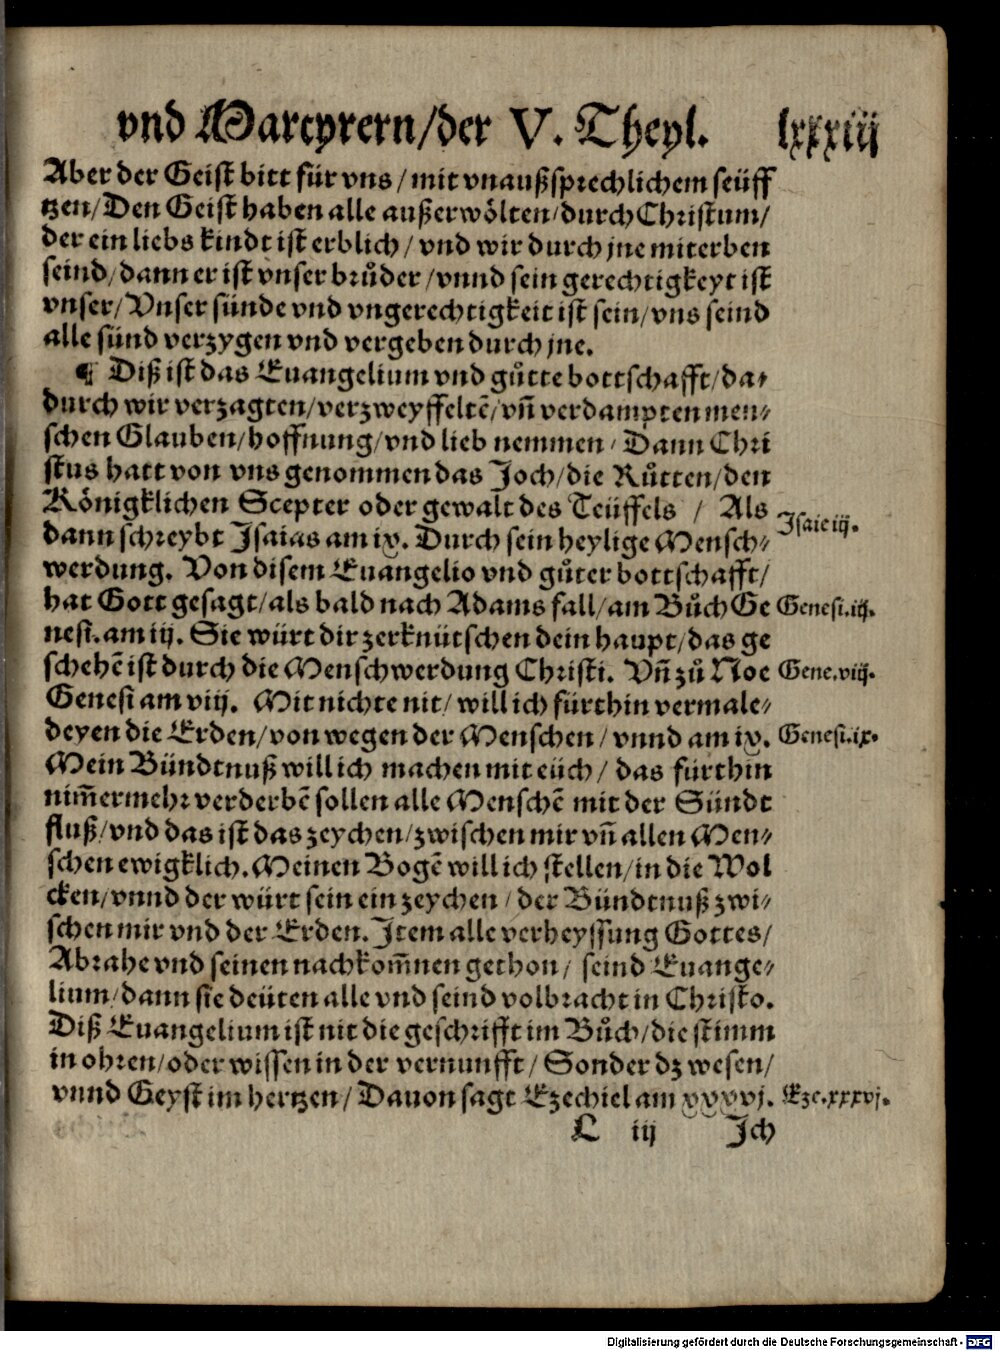 vnd Martyrern/der V. Theyl. lxxxiij
Aber der Geist bitt für vns/mit vnaußsprechlichem seüff
tzen/Den Geist haben alle außerwölten/durch Christum/
der ein liebs kindt ist erblich/vnd wir durch jne miterben
seind/dann er ist vnser brůder/vnnd sein gerechtigkeyt ist
vnser/Vnser sünde vnd vngerechtigkeit ist sein/vns seind
alle sünd verzygen vnd vergeben durch jne.
¶ Diß ist das Euangelium vnd gůtte bottschafft/da⸗
durch wir verzagten/verzweyffeltē/vñ verdampten men⸗
schen Glauben/hoffnung/vnd lieb nemmen/Dann Chri
stus hatt von vns genommen das Joch/die Růtten/den
Königklichen Scepter oder gewalt des Teüffels / Als
dann schreybt Isaias am ix. Durch sein heylige Mensch⸗
Isaie iij.
werdung. Von disem Euangelio vnd gůter bottschafft/
hat Gott gesagt/als bald nach Adams fall/am Bůch Ge
Genesi.iij.
nesi.am iij. Sie würt dir zerknütschen dein haupt/das ge
schehē ist durch die Menschwerdung Christi. Vñ zů Noe
Gene.viij.
Genesi am viij. Mit nichte nit/will ich fürthin vermale⸗
deyen die Erden/von wegen der Menschen/vnnd am ix.
Genesi.ix.
Mein Bündtnuß will ich machen mit eüch/das fürthin
nim̃ermehr verderbē sollen alle Menschē mit der Sündt
fluß/vnd das ist das zeychen/zwischen mir vñ allen Men⸗
schen ewigklich. Meinen Bogē will ich stellen/in die Wol
cken/vnnd der würt sein ein zeychen/der Bündtnuß zwi⸗
schen mir vnd der Erden. Item alle verheyssung Gottes/
Abrahe vnd seinen nachkom̃nen gethon/ seind Euange⸗
lium/dann sie deüten alle vnd seind volbracht in Christo.
Diß Euangelium ist nit die geschrifft im Bůch/die stimm
in ohren/oder wissen in der vernunfft/Sonder dz wesen/
vnnd Geyst im hertzen/Dauon sagt Ezechiel am xxxvj.
Eze.xxxvj.
L iij Ich
Digitalisierung gefördert durch die Deutsche Forschungsgemeinschaft - DFG